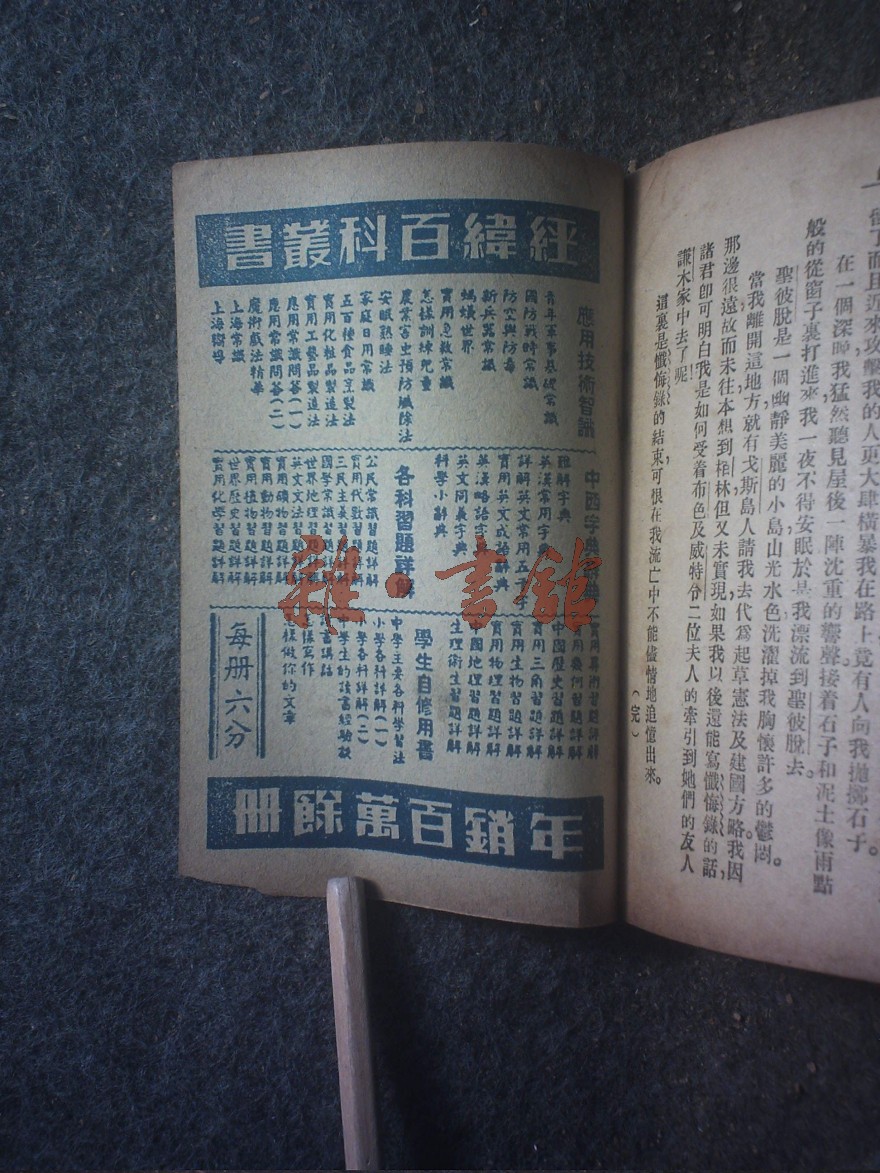 在一個深晚我猛然聽見屋後一陣沈重的響聲接着石子和泥土像雨點
般的從窗子裏打進來我一夜不得安眠於是我漂流到聖彼脫去。
聖彼脫是一個幽靜美麗的小島山光水色洗濯掉我胸懷許多的鬱悶。
當我離開這地方就有戈斯島人請我去代爲起草憲法及建國方略我因
那邊很遠故而未往本想到柏林但又未實現如果我以後還能寫懺悔錄的話，
諸君卽可明白我是如何受着布色及威特分二位夫人的牽引到她們的友人
謙木家中去了呢！
這裏是懺悔錄的結束可恨在我流亡中不能儘情地追憶出來。
（完）
經緯百科叢書
應用技術智識
青年軍事基礎常識
國防戰時常識
防空與防毒
新兵器常識
螞蟻世界
實用急救常識
怎樣訓練兒童
農業害虫預防殲除法
安眠熟睡法
家庭日用常識
五百種食品烹製法
實用化粧品製造法
實用工藝品製造法
應用常識問答（一）
應用常識問答（二）
魔術戲法精華
上海常識
中西字典辭典
難解字典
英漢常用字典
詳解英文常用五千字
實用英文成語辭典
英漢略語字典
英文同義字典
科學小辭典
各科習題詳解
公民常識習題詳解
實用代數習題詳解
三民主義習題詳解
國學常識習題詳解
世界地理習題詳解
英文文法習題詳解
實用礦物習題詳解
實用動物習題詳解
實用植物習題詳解
世界歷史習題詳解
實用化學習題詳解
實用算術習題詳解
實用幾何習題詳解
中國歷史習題詳解
實用三角習題詳解
實用生物習題詳解
實用物理習題詳解
中國地理習題詳解
生理衛生習題詳解
學生自修用書
中學主要各科學習法
小學各科詳解（一）
小學各科詳解（二）
中學生的讀書經驗談
樣寫作
樣做你的文章
每册六分
年銷百萬餘冊
雜·書館